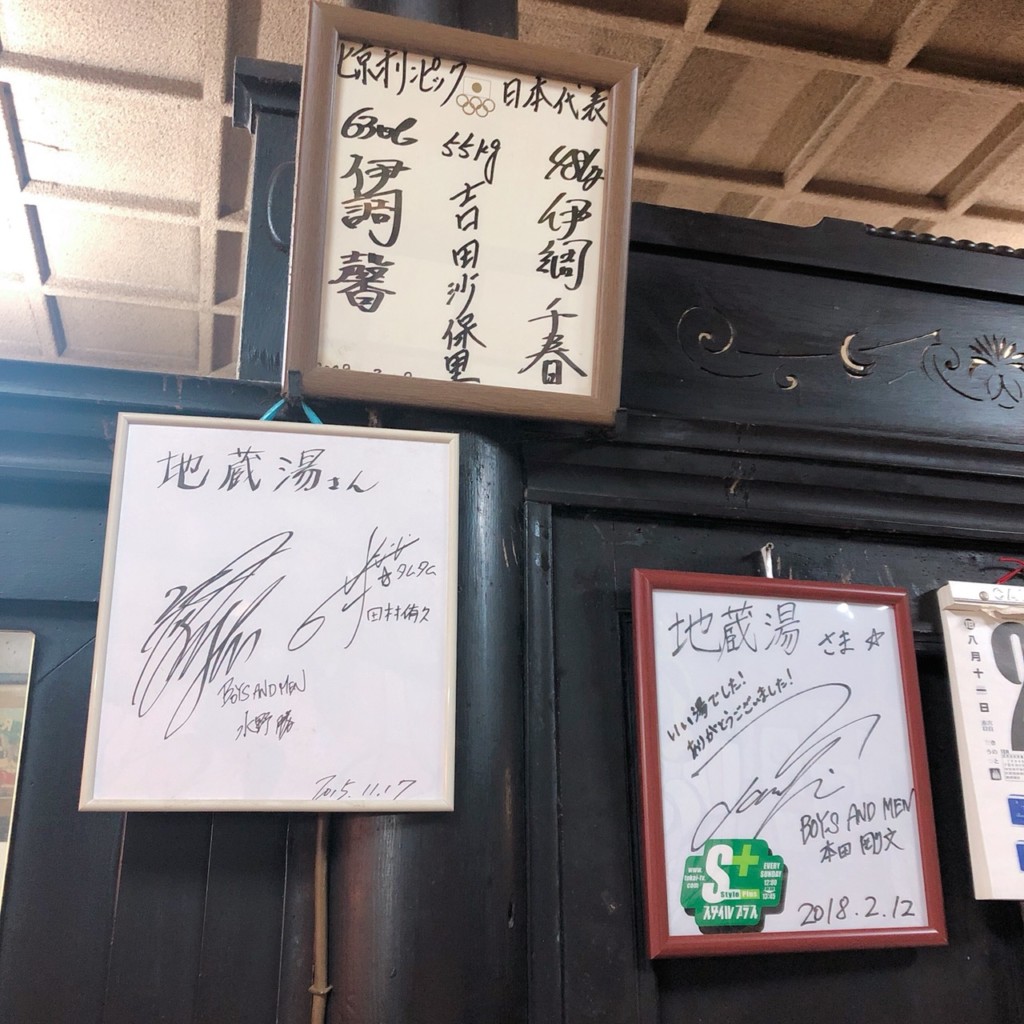 北京オリンピック 日本代表
48kg 伊調 千春
55kg 吉田沙保里
63kg 伊調 馨
地蔵湯さん
タムタム
田村侑久
BOYS AND MEN
水野 勝
2015.11.17
地蔵湯 さま☆
いい湯でした!
ありがとうございました!
BOYS AND MEN
本田 剛文
2018.2.12
S+
Style Plus
スタイルプラス
www.
tokai-tv.
com
EVERY
SUNDAY
12:00
13:45
八月十二日